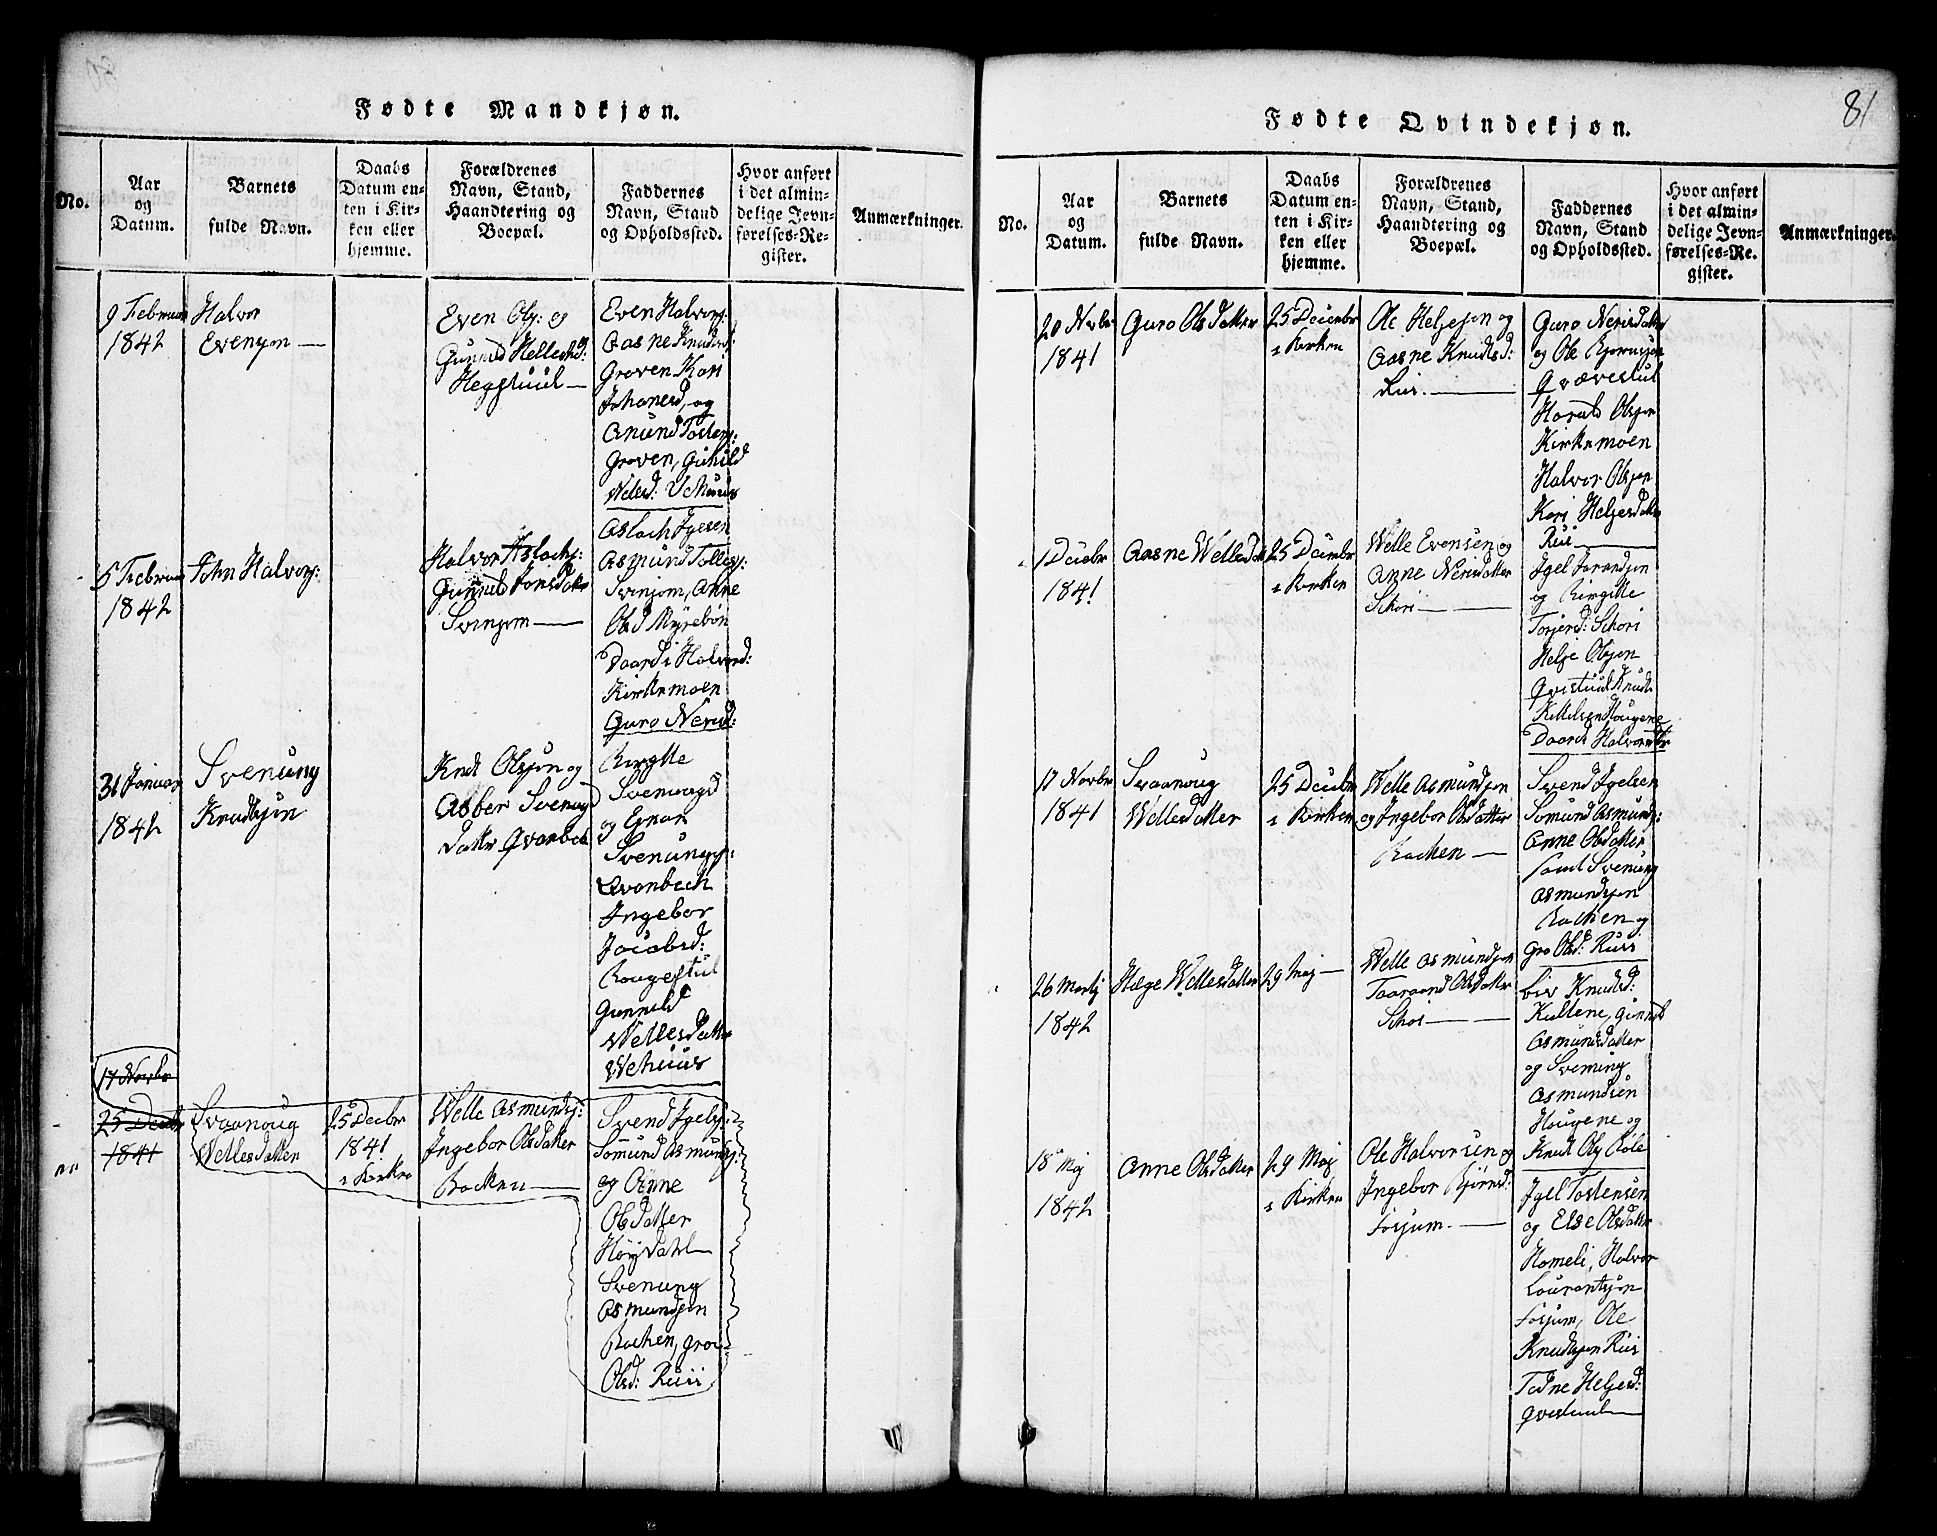 Fødte Mandkjøn.
No.
Aar
og
Datum.
Barnets
fulde Navn.
Daabs
Datum en-
ten i Kir-
ken eller
hjemme.
Forældrenes
Navn, Stand,
Haandtering og
Boepæl.
Faddernes
Navn, Stand
og Opholdssted.
Hvor anført
i det almin-
delige Jevn-
førelses-Re-
gister.
Anmærkninger.
9 Februar
1842
Halvor
Evensøn
Even Ols: og
Gunild Hellesd:
Hegstuul
Even Halvors:
Aasne Knudsd:
Groven Kari
Johanesd, og
Anund Tostens:
Groven, Gunild
Wetlesd:
5 Februar
1842
John Halvors:
Halvor Aslachs:
Gunild Jonsdatter
Svinjom
Aslach Igesen
Asmund Tolles:
Svinjom, Anne
Olsd Myrebøn
Taardi Halvord:
Kirkemoen
Guro Nerisd:
31 Januar
1842
Svenung
Knudsøn
Knut Olsøn og
Asber Svenugd
datter Qvanbek
Birgitte
Svenungd
og Ejnar
Svenungs:
Qvanbech
Ingebor
Jacobsd:
Gunnild
Wetlesdatter
Wehuus
17 Novbr
25 Decbr
1841
Svaanoug
Wetlesdatter
25 Decbr
1841
i Kirken
Wetle Asmunds:
Ingebor Olsdatter
Backen
Svend Igels:
Somund Asmunds:
og Anne
Olsdatter
Høydahl
Svenung
Asmundsøn
Backen, Groe
Olsd: Ruii
81
Fødte Qvindekjøn.
No.
Aar
og
Datum.
Barnets
fulde Navn.
Daabs
Datum en-
ten i Kir-
ken eller
hjemme.
Forældrenes
Navn, Stand,
Haandtering og
Boepæl.
Faddernes
Navn, Stand
og Opholdssted.
Hvor anført
i det almin-
delige Jevn-
førelses-Re-
gister.
Anmærkninger.
20 Novbr
1841
Guro Olsdatter
25 Decbr
i Kirken
Ole Heljesøn og
Aasne Knudsd:
Rui.
Guro Nerisdatter
og Ole Bjørnsøn
Qvævestul
Horald Olsøn
Kirkemoen
Halvor Olsøn
Kari Heljesdatter
Rui
1 Decbr
1841
Aasne Wetlesdatter
25 Decmbr
i Kirken
Wetle Evensen og
Anne Nerisdatter
Schori
Igel
og Birgitte
Torjerd: Schori
Helje Olsøn
Qvistuul Knudt
Kittelsen Hougene
Taardi Halvordatter
17 Novbr
1841
Svaanoug
Wetlesdatter
25 Decbr
i Kirken
Wetle Asmundsøn
og Ingebor Olsdatter
Backen
Svend Igelsen
Somund Asmunds:
Anne Olsdatter
samt Svenung
Asmundsøn
Backen og
Gro Olsd: Ruii
26 Martj
1842
Hæge Wetlesdatter
29 Maj
Wetle Asmundsøn
Taaraand Olsdatter
Schoi
Liv Knudsd:
Kultene, Gunild
Asmunsdatter
og Svennung
Asmundsen
Hougene og
Knut Ols Bøle
18 Maj
1842
Anne Olsdatter
29 Maj
i Kirken
Ole Halvorsen og
Ingebor Bjørnsd:
Forsjum.
Igel Tostensen
og Else Olsdatter
Homeli, Halvor
Lourantsøn
Forsjum, Ole
Knudsøn Rui
Tone Heljesd:
Qvestuul